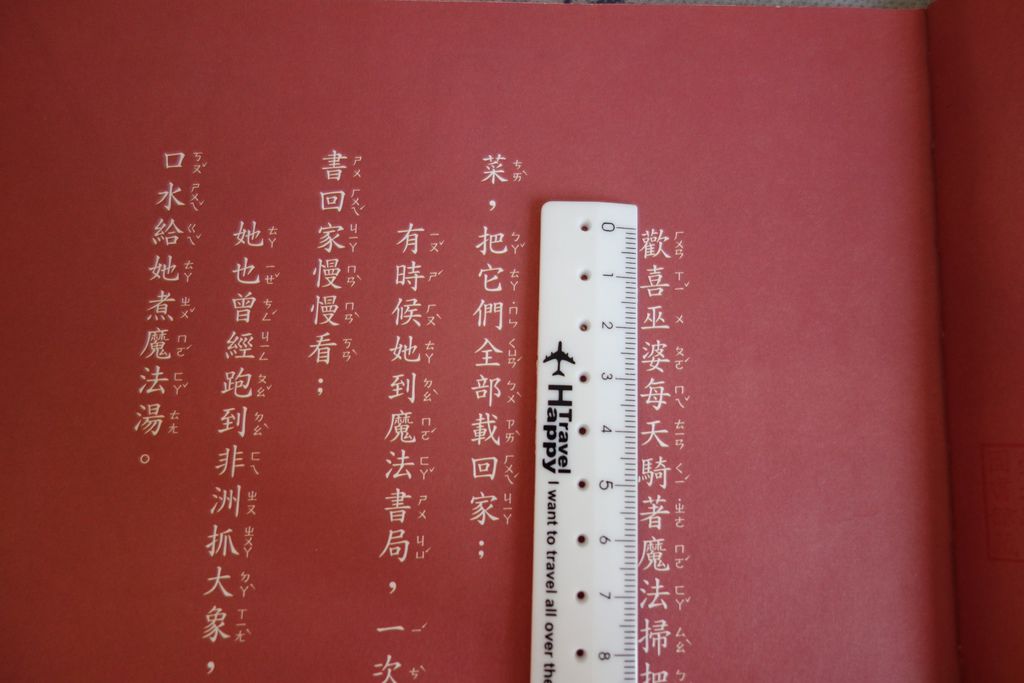 歡喜巫婆每天騎著魔法掃把
菜，把它們全部載回家；
有時候她到魔法書局，一次
書回家慢慢看；
她也曾經跑到非洲抓大象，
口水給她煮魔法湯。
0 1 2 3 4 5 6 7 8
Travel
Happy
I want to travel all over the